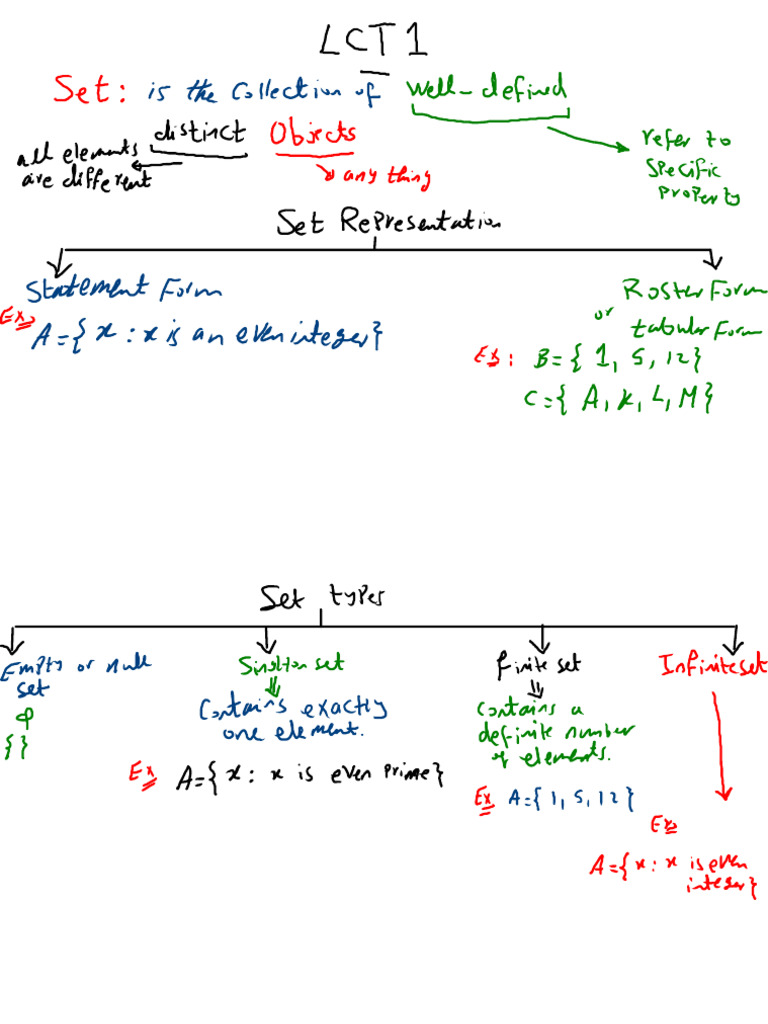 LCT1
Set: is the Collection of well-defined
distinct Objects
all elements are different
any thing
refer to specific property
Set Representation
Statement Form
Ex
A={x : x is an even integer}
Roster Form
or
tabular Form
Ex: B={1, 5, 12}
C={A, K, L, M}
Set types
Empty or null
set
ϕ
{}
Singlton set
Contains exactly
one element.
Ex A={x: x is even prime}
finite set
contains a
definite number
of elements.
Ex A={1, 5, 12}
Infinite set
Ex
A={x: x is even
integer}